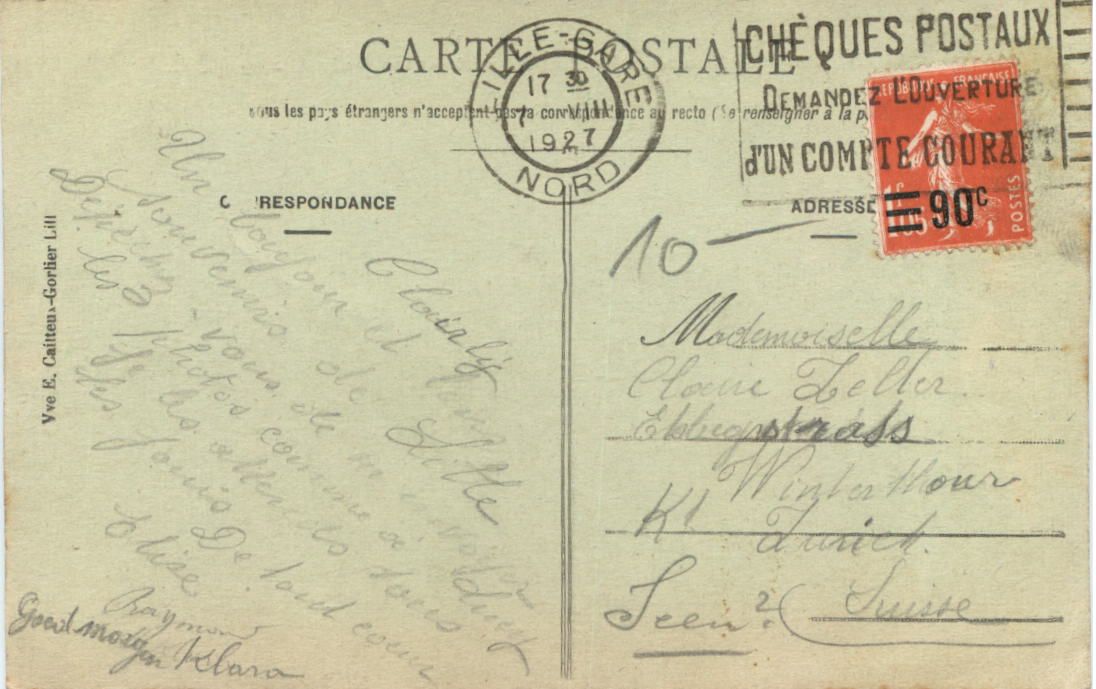 CARTE POSTALE
Tous les pays étrangers n'acceptent pas la correspondance au recto (Se renseigner à la p
LILLE-GARE
17 30
7 VIII
1927
NORD
CHÈQUES POSTAUX
DEMANDEZ L'OUVERTURE
d'UN COMPTE COURANT
REPUBLIQUE FRANÇAISE
POSTES
1F
05
90c
C RESPONDANCE
ADRESSE
Vve E. Cailteux-Gorlier Lill
Clairly
Un bonjour et
souvenirs de Lille
Dépêchez-vous de m'
les 3 photos comme
je les attends tous
les jours De tout coeur
Elise
Raymond
Good morgen Klara
10 —
Mademoiselle
Claire Zeller
strass
Winterthour
Kt Zurich.
Seen? Suisse